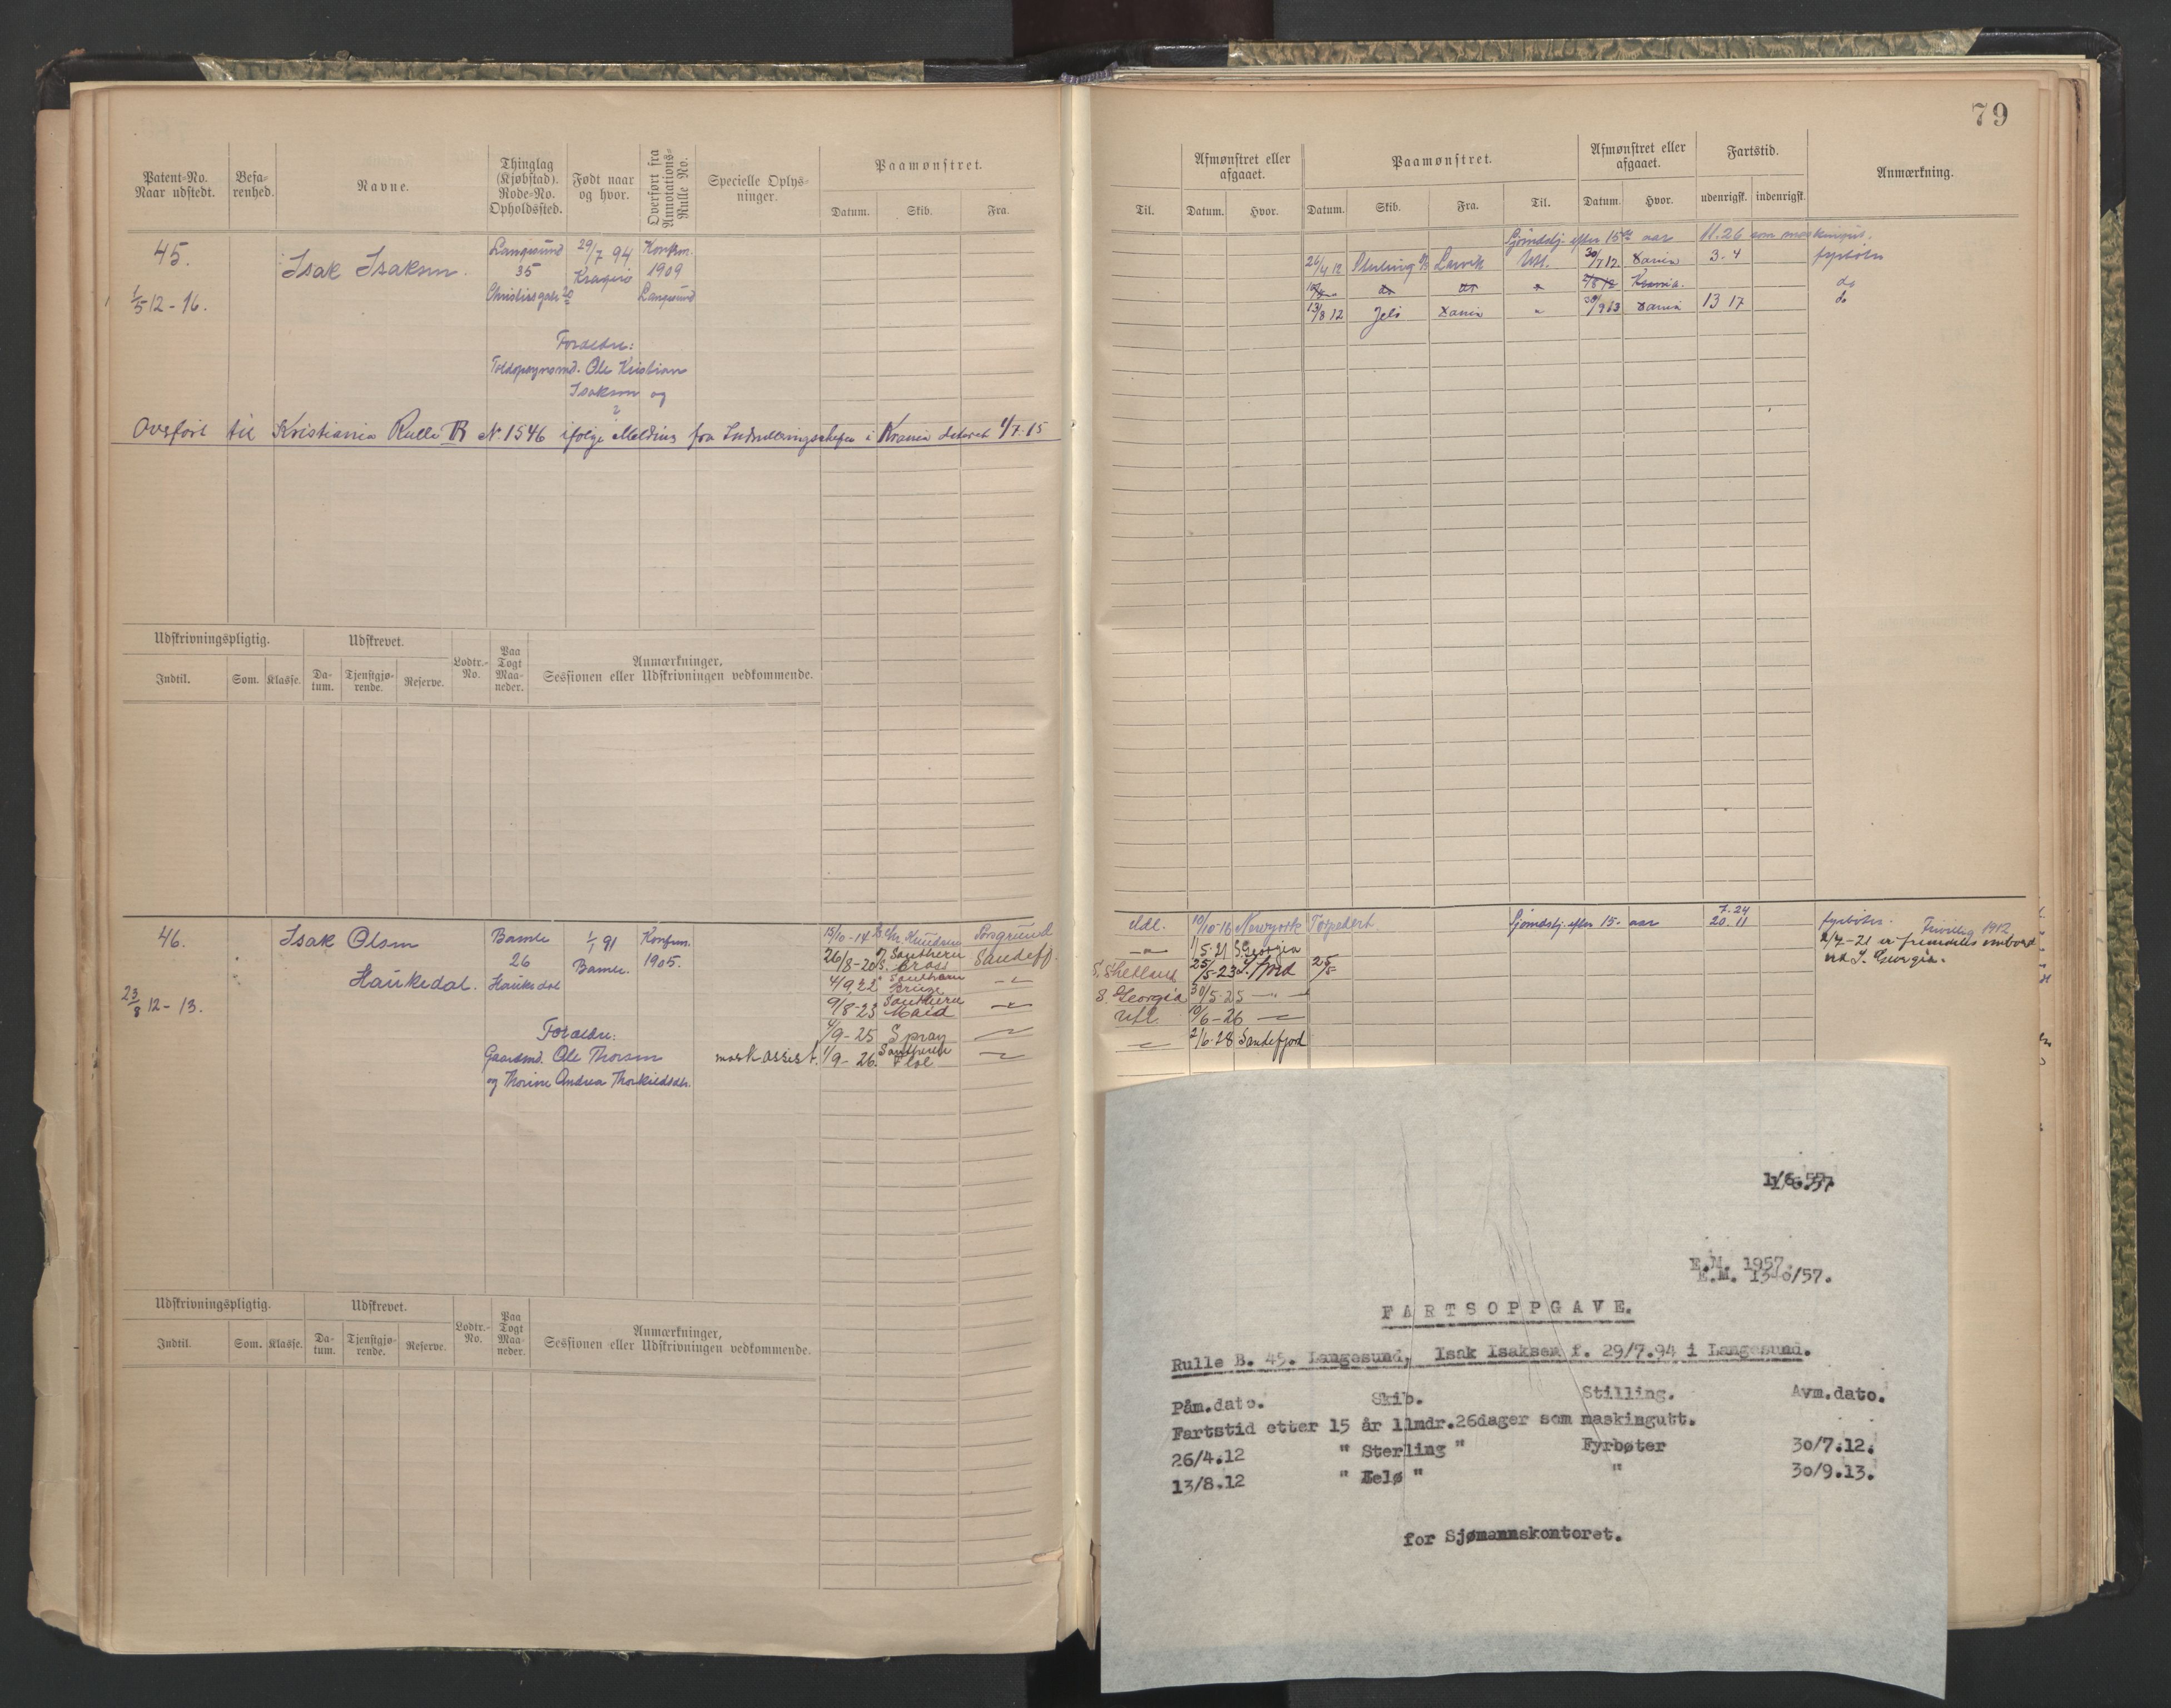 79
Patent-No. Naar udstedt.
Befa-renhed.
Navne.
Thinglag (Kjøbstad). Rode-No. Opholdssted.
Født naar og hvor.
Overført fra Annotations-Rulle No.
Specielle Oplys-ninger.
Paamønstret.
Datum. Skib. Fra.
Til.
Afmønstret eller afgaaet.
Datum. Hvor.
Paamønstret.
Datum. Skib. Fra. Til.
Afmønstret eller afgaaet.
Datum. Hvor.
Fartstid.
udenrigsk. indenrigsk.
Anmærkning.
45. Isak Isaksen. Langesund 29/7 94 Konfirm.
35 Kragerø 1909
1/5 12 - 16. Langesund
Forældre:
Ole Kristian
Isaksen og
?
Overført til Kristiania Rulle B No. 1546 ifølge Melding fra Indrulleringschefen i Krania dateret 1/7-15
Sjømdslj. efter 15 aar 11.26 som maskingut.
26/4 12 Sterling Larvik Utl. 30/7 12 Xania 3. 4 fyrbøter
do
13/8 12 Jelø Xania " 30/9 13 Xania 13 17 do
Udskrivningspligtig. Udskrevet. Lodtr.-No. Paa Togt Maa-neder. Anmærkninger, Sessionen eller Udskrivningen vedkommende.
Indtil. Som. Klasse. Da-tum. Tjenstgjø-rende. Reserve.
46. Isak Olsen Bamle 1/1 91 Konfirm.
26 Bamle. 1905.
Haukedal. Haukedal
23/8 12 - 13.
Forældre:
Gaardmd. Ole Thorsen
og Thorine Andrea Thorkildsdtr.
15/10-14 Chr. Knudsen Porsgrund
26/8-20 Southern Cross Sandefj.
4/9 22 Southern
9/8-23 Southern Maid
4/9-25 Spray
mask assist. 1/9-26. Southern
Udl. 10/10-16 Newyork Torpedert Sjømdslj. efter 15- aar 7.24
20.11 fyrbøter. Frivillig 1912
1/5-21 S. Georgia 2/7-21 er fremdeles ombord
ved S. Georgia.
S. Shetland 25/5-23 S. fjord 25/5
S. Georgia 30/5-25
Utl. 10/6-26
2/6-28 Sandefjord
Udskrivningspligtig. Udskrevet. Lodtr.-No. Paa Togt Maa-neder. Anmærkninger, Sessionen eller Udskrivningen vedkommende.
Indtil. Som. Klasse. Da-tum. Tjenstgjø-rende. Reserve.
1/6.57.
E.M. 1957.
FARTSOPPGAVE.
Rulle B. 45. Langesund, Isak Isaksen f. 29/7.94 i Langesund.
Påm.dato. Skib. Stilling. Avm.dato.
Fartstid etter 15 år 11mdr.26dager som maskingutt.
26/4.12 " Sterling " Fyrbøter 30/7.12.
13/8.12 " Jelø " " 30/9.13.
for Sjømannskontoret.